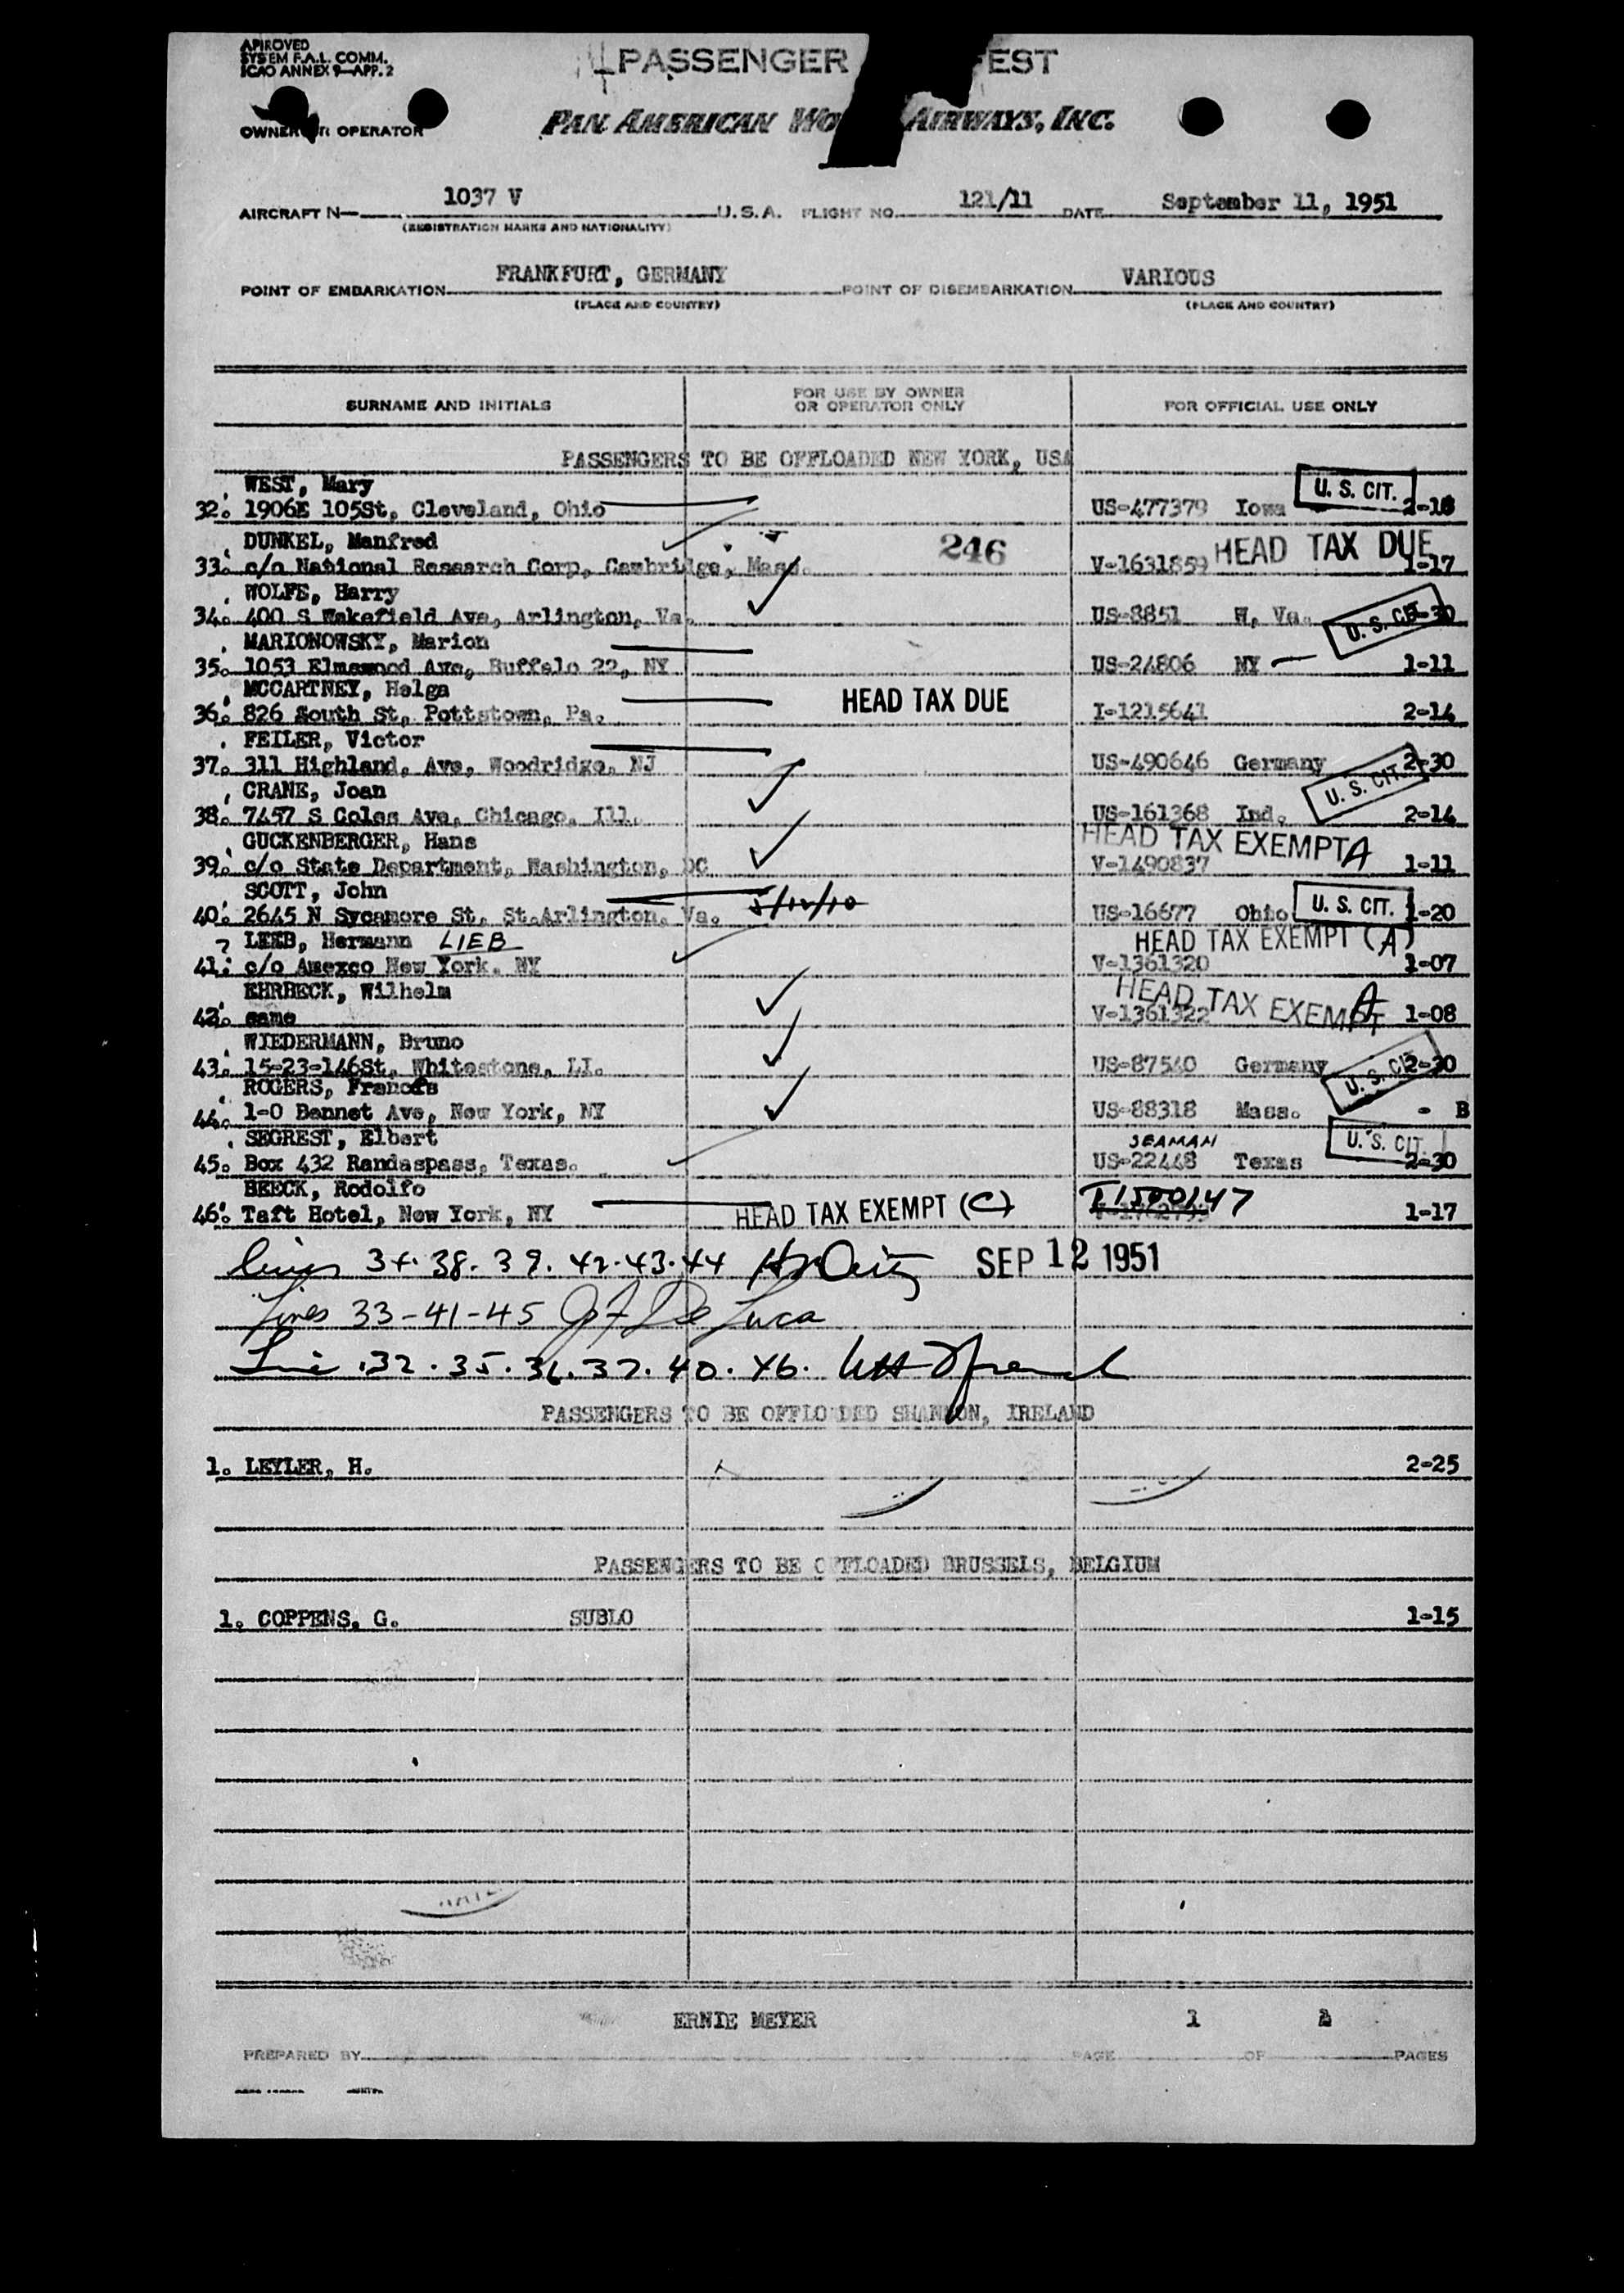 APIROVED
SYSTEM F.A.L. COMM.
ICAO ANNEX 9—APP. 2
PASSENGER EST
OWNER OR OPERATOR PAN AMERICAN WO AIRWAYS, INC.
AIRCRAFT N— 1037 V U.S.A. FLIGHT NO. 121/11 DATE September 11, 1951
(REGISTRATION MARKS AND NATIONALITY)
POINT OF EMBARKATION FRANKFURT, GERMANY POINT OF DISEMBARKATION VARIOUS
(PLACE AND COUNTRY) (PLACE AND COUNTRY)
SURNAME AND INITIALS FOR USE BY OWNER OR OPERATOR ONLY FOR OFFICIAL USE ONLY
PASSENGERS TO BE OFFLOADED NEW YORK, USA
WEST, Mary U. S. CIT.
32. 1906E 105St, Cleveland, Ohio US-477379 Iowa 2-18
DUNKEL, Manfred 246 HEAD TAX DUE
33. c/o National Research Corp, Cambridge, Mass. V-1631859 1-17
WOLFE, Harry
34. 400 S Wakefield Ave, Arlington, Va. US-8851 W. Va. U. S. CIT. -30
MARIONOWSKY, Marion
35. 1053 Elmswood Ave, Buffalo 22, NY US-24806 NY 1-11
MCCARTNEY, Helga HEAD TAX DUE
36. 826 South St, Pottstown, Pa. I-1215641 2-14
FEILER, Victor
37. 311 Highland, Ave, Woodridge, NJ US-490646 Germany 2-30
CRANE, Joan U. S. CIT.
38. 7457 S Coles Ave, Chicago, Ill. US-161368 Ind. 2-14
GUCKENBERGER, Hans HEAD TAX EXEMPT A
39. c/o State Department, Washington, DC V-1490837 1-11
SCOTT, John
40. 2645 N Sycamore St, St.Arlington, Va. US-16677 Ohio U. S. CIT. 1-20
? LEEB, Hermann LIEB HEAD TAX EXEMPT (A)
41. c/o Amexco New York. NY V-1361320 1-07
EHRBECK, Wilhelm HEAD TAX EXEMPT A
42. same V-1361322 1-08
WIEDERMANN, Bruno
43. 15-23-146St, Whitestone, LI. US-87540 Germany 2-30
ROGERS, Francis U. S. CIT
44. 1-0 Bennet Ave, New York, NY US-88318 Mass. - B
SEGREST, Elbert SEAMAN U. S. CIT
45. Box 432 Randaspass, Texas. US-22448 Texas 2-30
BEECK, Rodolfo
46. Taft Hotel, New York, NY HEAD TAX EXEMPT (C) 1-17
Lines 34. 38. 39. 42. 43. 44 SEP 12 1951
Lines 33-41-45 De Luca
Line 32. 35. 36. 37. 40. 46.
PASSENGERS TO BE OFFLO DED SHANNON, IRELAND
1. LEYLER, H. 2-25
PASSENGERS TO BE O FFLOADED BRUSSELS, BELGIUM
1. COPPENS, G. SUBLO 1-15
ERNIE MEYER 1
PREPARED BY PAGE OF PAGES